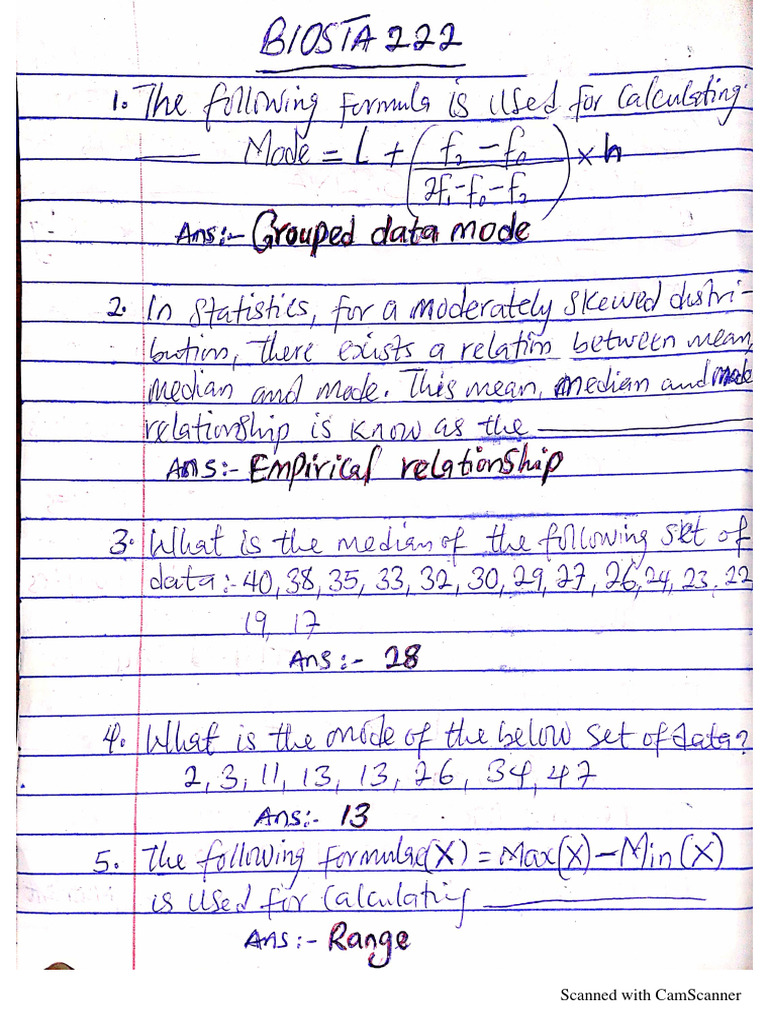 BIOSTA 222
1. The following formula is used for calculating
___ Mode = L + (f₂ - f₀ / 2f₁ - f₀ - f₂) × h
Ans:- Grouped data mode
2. In statistics, for a moderately skewed distri-
bution, there exists a relation between mean,
median and mode. This mean, median and mode
relationship is know as the ___
Ans:- Empirical relationship
3. What is the median of the following set of
data:- 40, 38, 35, 33, 32, 30, 29, 27, 26, 24, 23, 22
19, 17
Ans:- 28
4. What is the mode of the below set of data?
2, 3, 11, 13, 13, 26, 34, 47
Ans:- 13
5. The following formula (X) = Max(X) - Min(X)
is used for calculating ___
Ans:- Range
Scanned with CamScanner